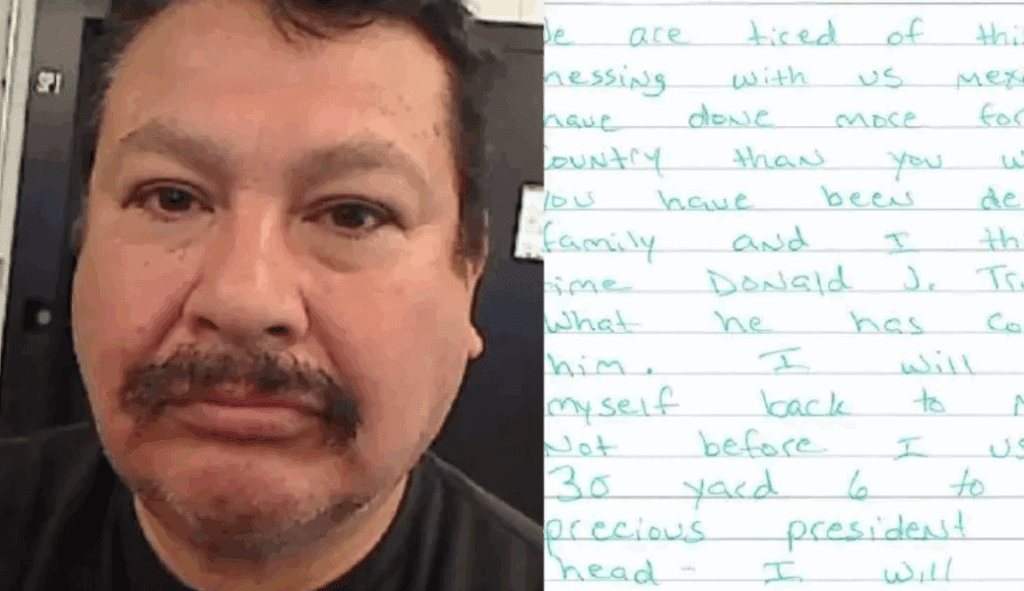 SP1
We are tired of thi
messing with us Mexi
have done more for
country than you w
You have been de
family and I thi
time Donald J. Tru
what he has co
him. I will
myself back to M
Not before I us
30 yard 6 to
precious president
head - I will